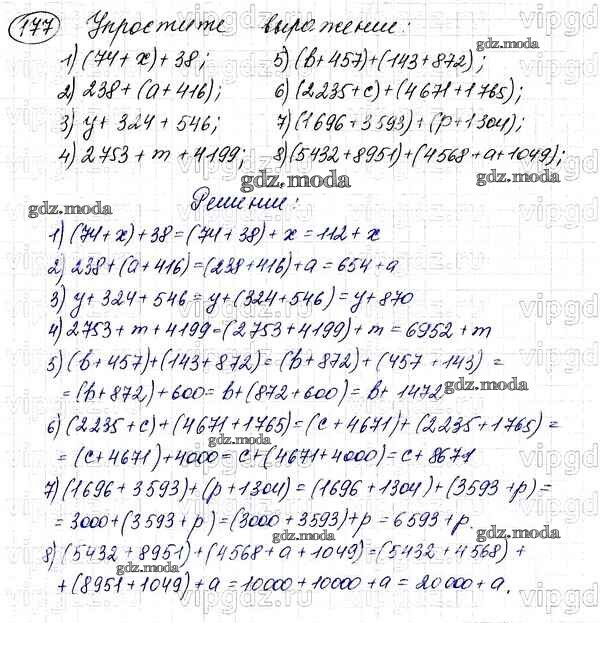 177 Упростите выражение:
1) (74+x)+38; 5) (b+457)+(143+872);
2) 238+(a+416); 6) (2235+c)+(4671+1765);
3) y+324+546; 7) (1696+3593)+(p+1304);
4) 2753+m+4199; 8) (5432+8951)+(4568+a+1049);
Решение:
1) (74+x)+38=(74+38)+x=112+x
2) 238+(a+416)=(238+416)+a=654+a
3) y+324+546=y+(324+546)=y+870
4) 2753+m+4199=(2753+4199)+m=6952+m
5) (b+457)+(143+872)=(b+872)+(457+143)=
=(b+872)+600=b+(872+600)=b+1472
6) (2235+c)+(4671+1765)=(c+4671)+(2235+1765)=
=(c+4671)+4000=c+(4671+4000)=c+8671
7) (1696+3593)+(p+1304)=(1696+1304)+(3593+p)=
=3000+(3593+p)=(3000+3593)+p=6593+p.
8) (5432+8951)+(4568+a+1049)=(5432+4568)+
+(8951+1049)+a=10000+10000+a=20000+a.
gdz.moda
vipgdz.ru